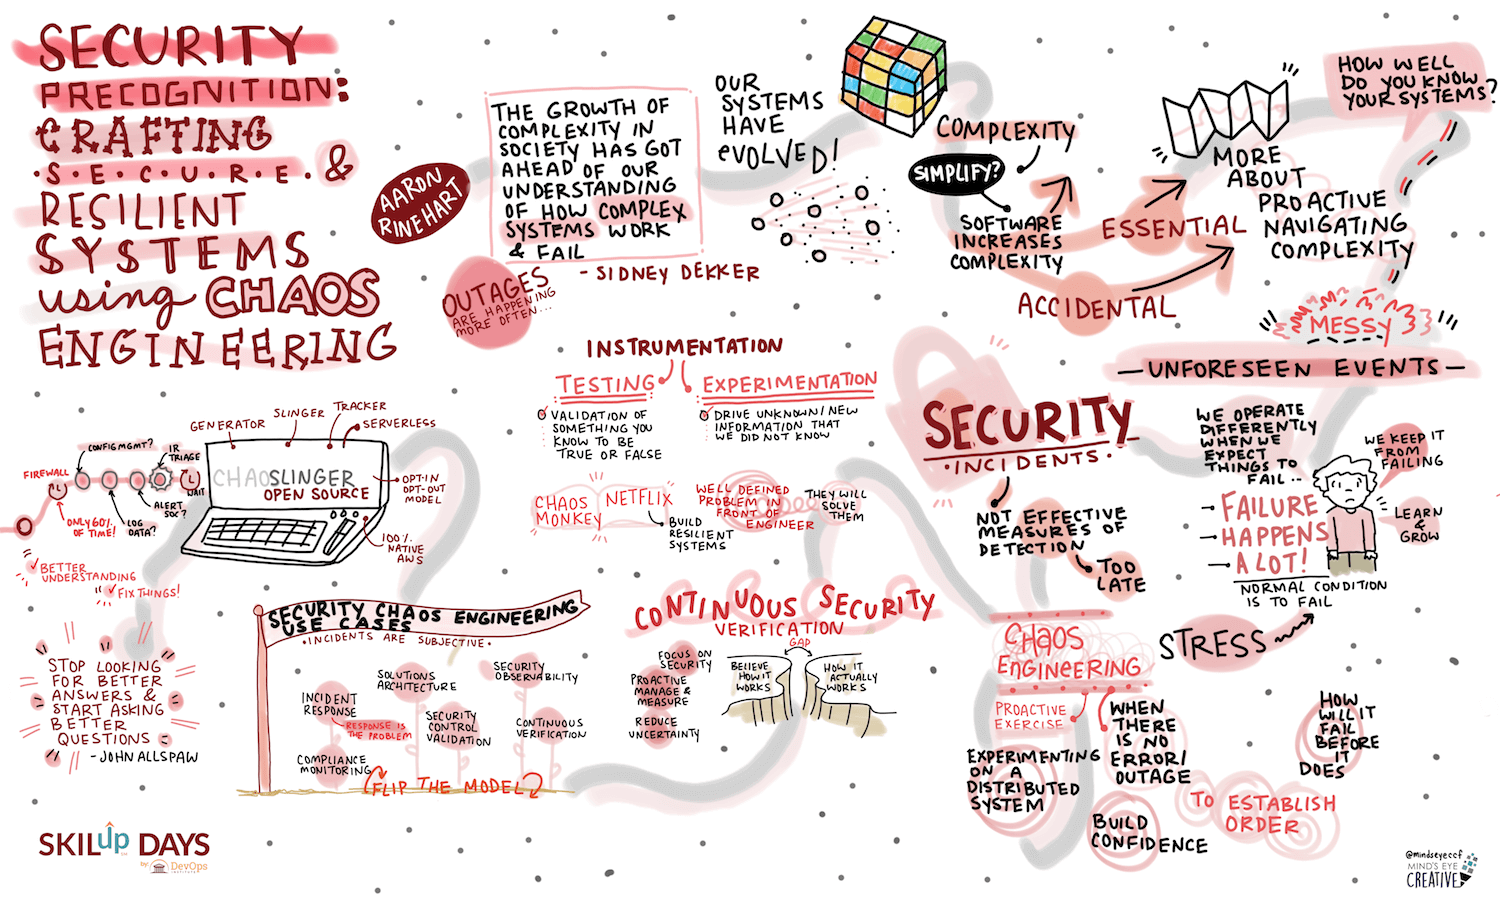 SECURITY
PRECOGNITION:
CRAFTING
S.E.C.U.R.E. &
RESILIENT
SYSTEMS
using CHAOS
ENGINEERING
AARON
RINEHART
THE GROWTH OF
COMPLEXITY IN
SOCIETY HAS GOT
AHEAD OF OUR
UNDERSTANDING
OF HOW COMPLEX
SYSTEMS WORK
& FAIL
- SIDNEY DEKKER
OUTAGES
ARE HAPPENING
MORE OFTEN...
OUR
SYSTEMS
HAVE
eVOLVED!
COMPLEXITY
SIMPLIFY?
SOFTWARE
INCREASES
COMPLEXITY
ESSENTIAL
ACCIDENTAL
MORE
ABOUT
PROACTIVE
NAVIGATING
COMPLEXITY
HOW WELL
DO YOU KNOW
YOUR SYSTEMS?
MESSY
- UNFORESEEN EVENTS -
INSTRUMENTATION
TESTING
VALIDATION OF
SOMETHING YOU
KNOW TO BE
TRUE OR FALSE
EXPERIMENTATION
DRIVE UNKNOWN/NEW
INFORMATION THAT
WE DID NOT KNOW
CHAOS
MONKEY
NETFLIX
BUILD
RESILIENT
SYSTEMS
WELL DEFINED
PROBLEM IN
FRONT OF
ENGINEER
THEY WILL
SOLVE
THEM
SECURITY
• INCIDENTS •
NOT EFFECTIVE
MEASURES OF
DETECTION
TOO
LATE
WE OPERATE
DIFFERENTLY
WHEN WE
EXPECT
THINGS TO
FAIL..
FAILURE
HAPPENS
A LOT!
NORMAL CONDITION
IS TO FAIL
WE KEEP IT
FROM
FAILING
LEARN
&
GROW
STRESS
GENERATOR
SLINGER
TRACKER
SERVERLESS
CHAOSLINGER
OPEN SOURCE
OPT-IN
OPT-OUT
MODEL
100%
NATIVE
AWS
FIREWALL
CONFIG MGMT?
IR
TRIAGE
L
L
WAIT
ONLY 60%
OF TIME!
LOG
DATA?
ALERT
SOC?
BETTER
UNDERSTANDING
FIX THINGS!
STOP LOOKING
FOR BETTER
ANSWERS &
START ASKING
BETTER
QUESTIONS
- JOHN ALLSPAW
SECURITY CHAOS ENGINEERING
USE CASES
• INCIDENTS ARE SUBJECTIVE •
INCIDENT
RESPONSE
RESPONSE IS
THE PROBLEM
SOLUTIONS
ARCHITECTURE
SECURITY
OBSERVABILITY
SECURITY
CONTROL
VALIDATION
CONTINUOUS
VERIFICATION
COMPLIANCE
MONITORING
FLIP THE MODEL
CONTINUOUS SECURITY
VERIFICATION
FOCUS ON
SECURITY
PROACTIVE
MANAGE &
MEASURE
REDUCE
UNCERTAINTY
GAP
BELIEVE
HOW IT
WORKS
HOW IT
ACTUALLY
WORKS
CHAOS
ENGINEERING
PROACTIVE
EXERCISE
WHEN
THERE
IS NO
ERROR/
OUTAGE
EXPERIMENTING
ON A
DISTRIBUTED
SYSTEM
BUILD
CONFIDENCE
TO ESTABLISH
ORDER
HOW
WILL IT
FAIL
BEFORE
IT
DOES
SKILup DAYS
By: DevOps
INSTITUTE
@mindseyeccf
MIND'S EYE
CREATIVE